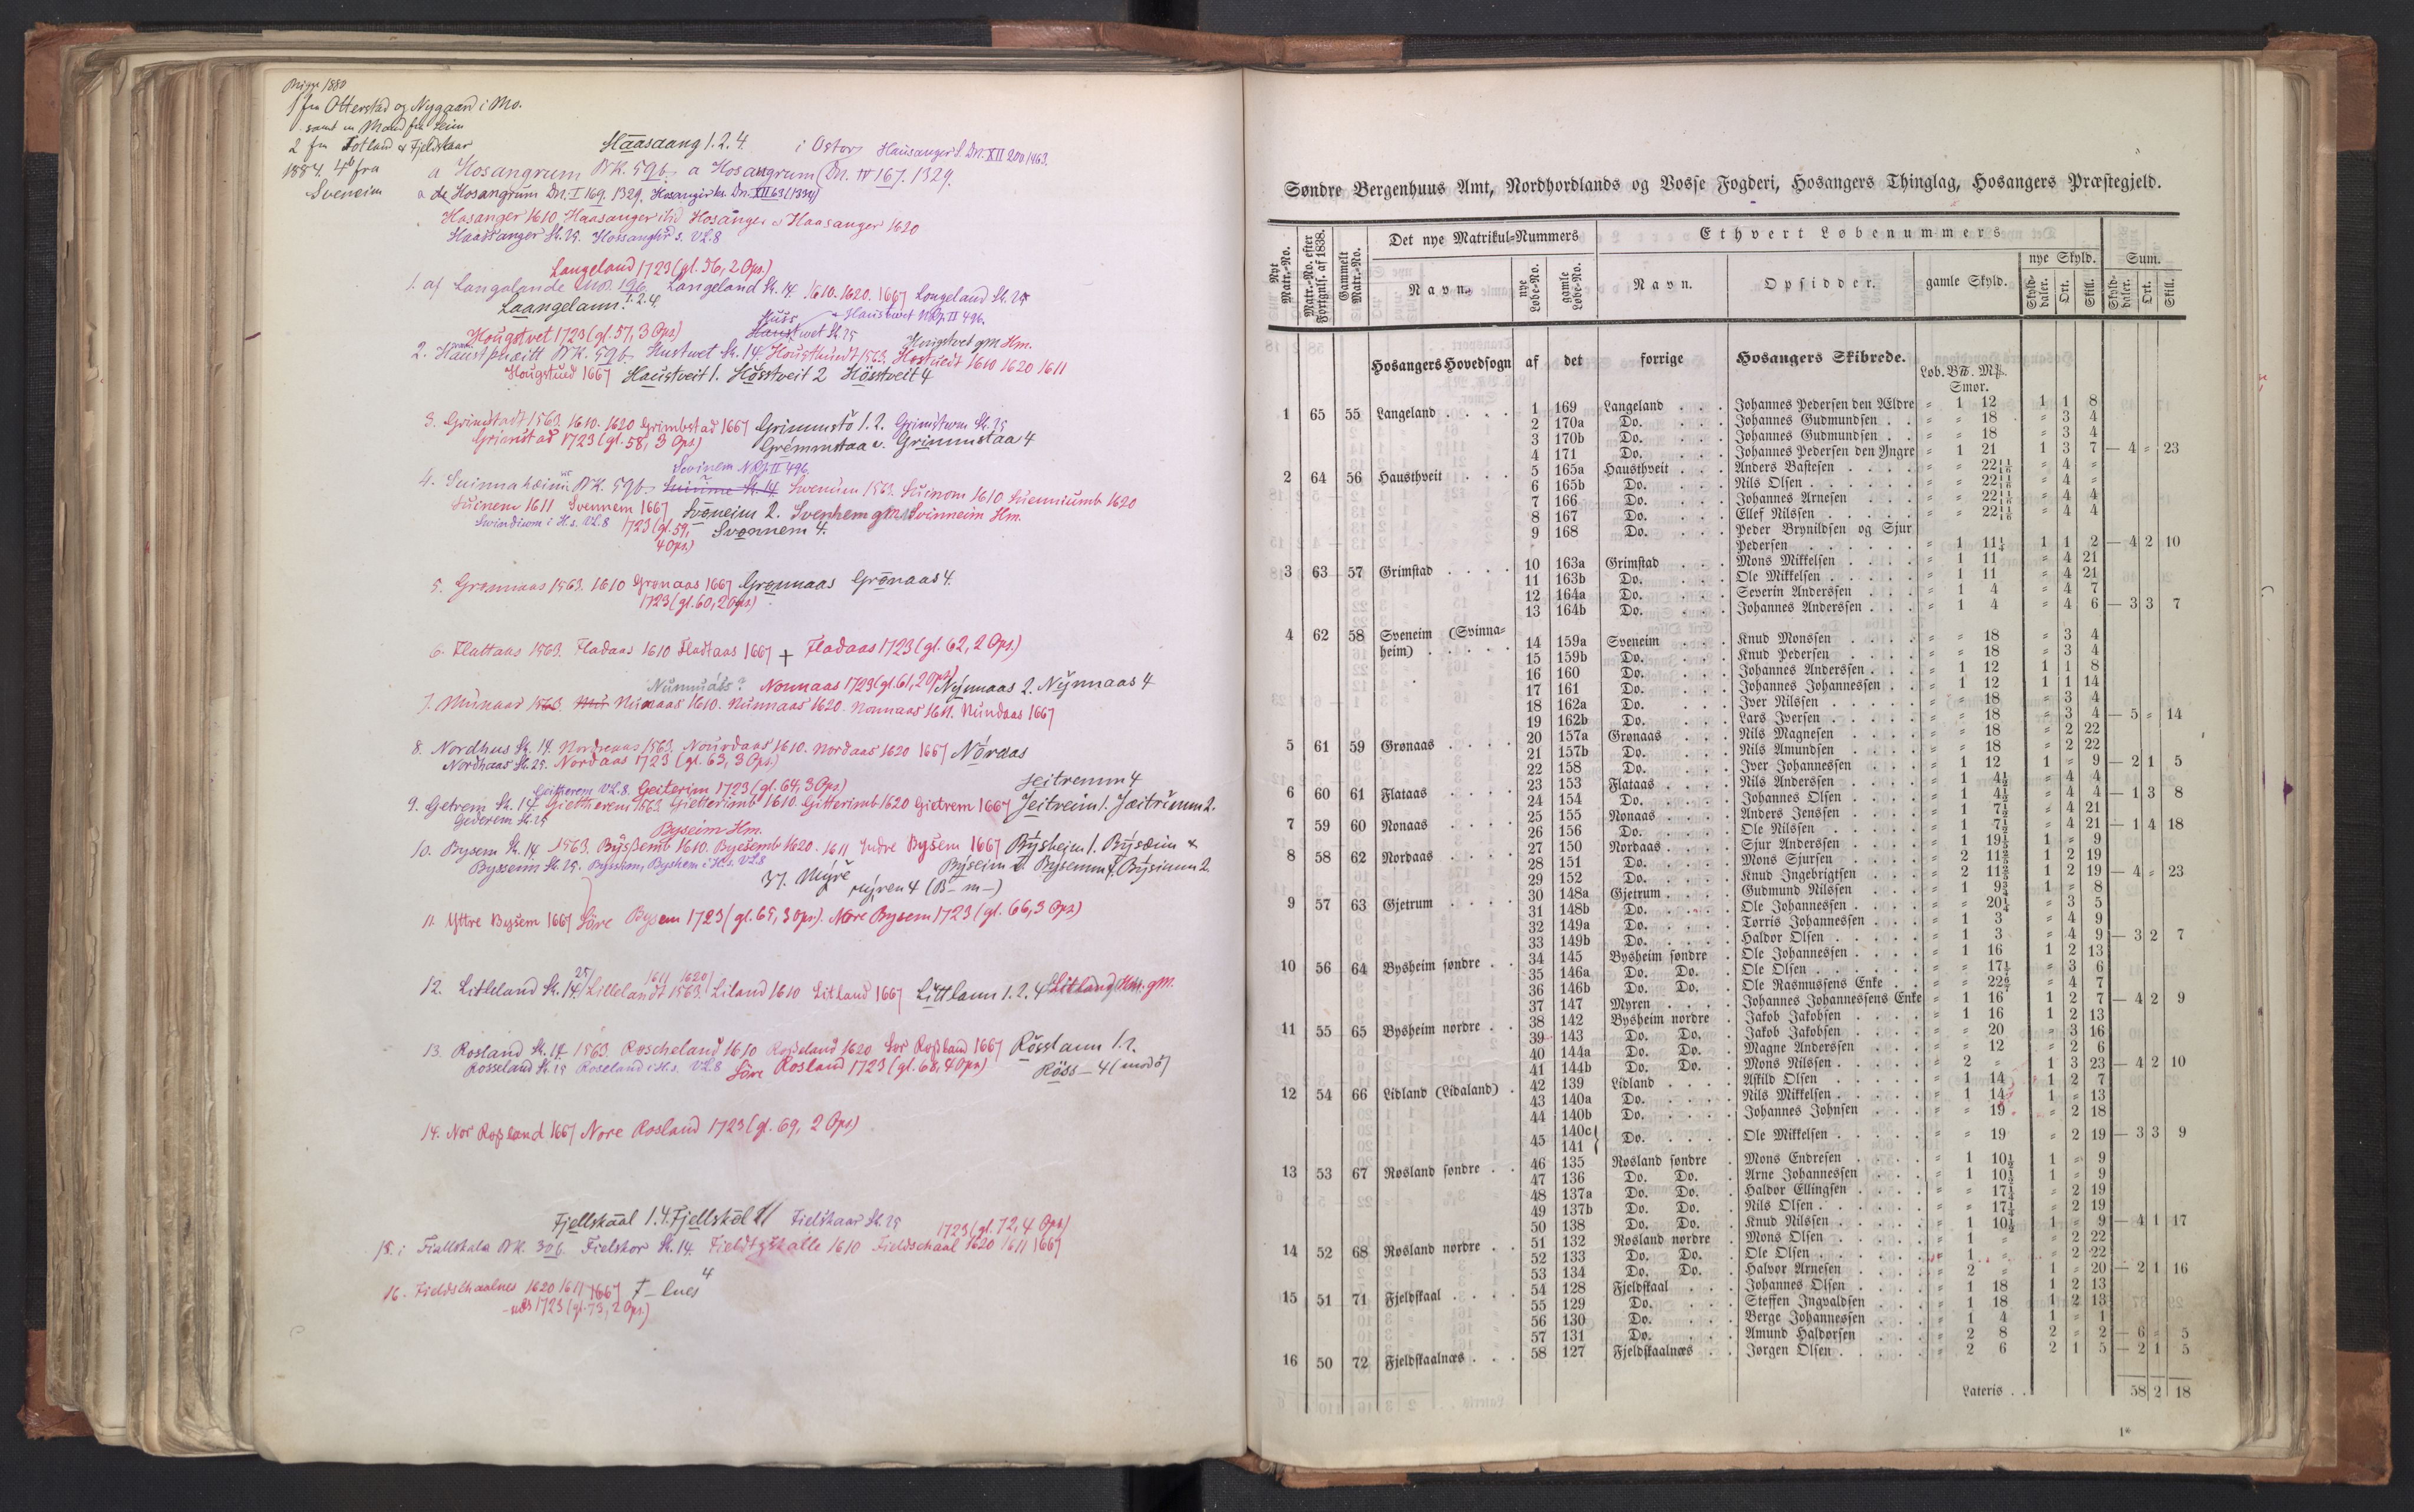 Rigge 1880
1 fra Otterstad og Nygaard i Mo.
samt en Mand fra Seim
2 fra Totland & Fjeldskaar
1884. 4b fra
Sveneim
Haasaang 1.2.4
i Oster Hausanger S. Dn. XII 200 1463.
a Hosangrum BK. 59b a Hosangrum (Dn. IV 167. 1329.
a de Hosangrum Dn. I 169. 1329. Hosanger ks. Dn. XII 63 (1334)
Hosanger 1610 Haasanger ibid Hosanger & Haasanger 1620
Haassanger St. 25. Hossanghr s. VL. 8
Langeland 1723 (gl. 56, 2 Ops.)
1. af Langalande 19b Langeland Sk. 14. 1610. 1620. 1667 Longeland St. 25
Laangelann. 1.2.4.
Huss
Haustwet St. 25
Haustwet NRJ. II 496.
Hougstvet 1723 (gl. 57, 3 Ops)
Hougstvet gM Hm.
2. Haustþuæitt BK. 59b Hustwet Sk. 14. 1563. 1610 1620 1611
Hougstued 1667 Haustveit 1. Hösstveit 2 Hösstveit 4
3. Grimstadt 1563. 1610. 1620 Grimbstad 1667 Grimmstö 1.2. St. 25
Grimstad 1723 (gl. 58, 3 Ops.) Gremmstaa v. Grimmstaa 4
Svinem NRJ. II 496.
4. Suinnahæimi BK. 59b Sk. 14 Swenum 1563. Suinom 1610 Suenniumb 1620
Suinem 1611 Svennem 1667 Svoneim 2. Svenhem gM. Svinneim Hm.
Swindiom i H.s. VL. 8 1723 (gl. 59, 4 Ops.) Svonnem 4.
5. Gronnaas 1563. 1610 Grønaas 1667 Gronnaas Grønaas 4.
1723 (gl. 60, 2 Ops)
6. Flattaas 1563. Fladaas 1610 Fladtaas 1667 + Fladaas 1723 (gl. 62, 2 Ops.)
Nunnuáss? Nonnaas 1723 (gl. 61, 2 Ops) Nýnnaas 2. Nýnnaas 4
7. Munaas 1563. Nunaas 1610. Nunnaas 1620. Nonnaas 1611. Nundaas 1667
8. Nordhus Sk. 14. 1563. Nourdaas 1610. Nordaas 1620 1667 Nóraas
Nordhaas St. 25. Nordaas 1723 (gl. 63, 3 Ops.)
Geitherem VL. 8. Geiterim 1723 (gl. 64, 3 Ops.)
Jeitremm 4
9. Getrem Sk. 14. Gietherem 1563. Gietteriomb 1610. Gitterimb 1620 Gietrem 1667 Jeitreim 1. Jæitrimm 2.
Gederem St. 25
Byseim Hm.
10. Bysem Sk. 14. 1563. Byssemb 1610. Byesemb 1620. 1611 Indre Bysem 1667 Býsheim 1. Býsæim &
Byssem St. 25. Bysshem, Byshem i H.s. VL 8 Býseim 2. Bysemm 4. Býsimm 2.
37. Mýre
Mýren 4 (B_ m_)
11. Yttre Bysem 1667 Söre Bysem 1723 (gl. 65, 3 Ops). Nore Bysem 1723 (gl. 66, 3 Ops)
12. Litleland Sk. 14. 25 Lillelandt 1563. 1611 1620 Liland 1610 Litland 1667 Littlann 1.2.4 Litland Hm. gM.
13. Rosland Sk. 14 1563. Roscheland 1610 Rosseland 1620 Sør Rossland 1667 Rösslann 1.2.
Rosseland St. 25 Roseland i H.s. VL 8 Söre Rosland 1723 (gl. 68, 4 Ops) Röss_ 4 (mod ö)
14. Nor Rossland 1667 Nore Rosland 1723 (gl. 69, 2 Ops)
Fjellskaal 1.4. Fjellsköl 2/ Fielskaar St. 25 1723 (gl. 72, 4 Ops)
15. i Fiallskala BK. 30b Fielskor Sk. 14. 1610 Fieldschaal 1620 1611 1667
16. Fieldschaalnes 1620 1611 1667 F_lnes 4
_næs 1723 (gl. 73, 2 Ops.)
Søndre Bergenhuus Amt, Nordhordlands og Vosse Fogderi, Hosangers Thinglag, Hosangers Præstegjeld.
Nyt Matr.-No.
Matr.-No. efter Fortgnls. af 1838.
Gammelt Matr.-No.
Det nye Matrikul-Nummers
Ethvert Løbenummers
Sum.
Navn.
nye Løbe-No.
gamle Løbe-No.
Navn.
Opsidder.
gamle Skyld.
nye Skyld.
Skylddaler. Ort. Skill.
Skylddaler. Ort. Skill.
Hosangers Hovedsogn af det forrige Hosangers Skibrede.
Løb. B℔. M℔.
Smør.
1 65 55 Langeland 1 169 Langeland Johannes Pedersen den Ældre = 1 12 1 1 8
2 170a Do. Johannes Gudmundsen = = 18 = 3 4
3 170b Do. Johannes Gudmundsen = = 18 = 3 4
4 171 Do. Johannes Pedersen den Yngre = 1 21 1 3 7 — 4 = 23
2 64 56 Hausthveit 5 165a Hausthveit Anders Bastesen = = 22 11/16 = 4 =
6 165b Do. Nils Olsen = = 22 11/16 = 4 =
7 166 Do. Johannes Arnesen = = 22 11/16 = 4 4
8 167 Do. Ellef Nilssen = = 22 11/16 = 4 4
9 168 Do. Peder Brynildsen og Sjur
Pedersen = 1 11¼ 1 1 2 — 4 2 10
3 63 57 Grimstad 10 163a Grimstad Mons Mikkelsen = 1 11 = 4 21
11 163b Do. Ole Mikkelsen = 1 11 = 4 21
12 164a Do. Severin Anderssen = 1 4 = 4 7
13 164b Do. Johannes Anderssen = 1 4 = 4 6 — 3 3 7
4 62 58 Sveneim (Svinna=
heim) 14 159a Sveneim Knud Monssen = = 18 = 3 4
15 159b Do. Knud Pedersen = = 18 = 3 4
16 160 Do. Johannes Anderssen = 1 12 1 1 8
17 161 Do. Johannes Johannessen = 1 12 1 1 14
18 162a Do. Iver Nilssen = = 18 = 3 4
19 162b Do. Lars Iversen = = 18 = 3 4 — 5 = 14
5 61 59 Grønaas 20 157a Grønaas Nils Magnesen = = 18 = 2 22
21 157b Do. Nils Amundsen = = 18 = 2 22
22 158 Do. Iver Johannessen = 1 12 1 = 9 — 2 1 5
6 60 61 Flataas 23 153 Flataas Nils Anderssen = 1 4½ = 4 4
24 154 Do. Johannes Olsen = 1 4½ = 4 4 — 1 3 8
7 59 60 Nonaas 25 155 Nonaas Anders Jenssen = 1 7½ = 4 21
26 156 Do. Ole Nilssen = 1 7½ = 4 21 — 1 4 18
8 58 62 Nordaas 27 150 Nordaas Sjur Anderssen = 1 19½ 1 = 9
28 151 Do. Mons Sjursen = 2 11⅔ 1 2 19
29 152 Do. Knud Ingebrigtsen = 2 11⅔ 1 2 19 — 4 = 23
9 57 63 Gjetrum 30 148a Gjetrum Gudmund Nilssen = 1 9¾ 1 = 8
31 148b Do. Ole Johannessen = = 20¼ = 3 5
32 149a Do. Torris Johannessen = 1 3 = 4 9
33 149b Do. Haldor Olsen = 1 3 = 4 9 — 3 2 7
10 56 64 Bysheim søndre 34 145 Bysheim søndre Ole Johannessen = 1 16 1 2 13
35 146a Do. Do. Ole Olsen = = 17½ = 3 6
36 146b Do. Do. Ole Rasmussens Enke = = 22 = 4 7
37 147 Myren Johannes Johannessens Enke = 1 16 1 2 7 — 4 2 9
11 55 65 Bysheim nordre 38 142 Bysheim nordre Jakob Jakobsen = 1 16 1 2 13
39 143 Do. Do. Jakob Jakobsen = = 20 = 3 16
40 144a Do. Do. Magne Anderssen = = 12 = 2 6
41 144b Do. Do. Mons Nilssen = 2 = 1 3 23 — 4 2 10
12 54 66 Lidland (Lidaland) 42 139 Lidland Askild Olsen = 1 14 1 2 7
43 140a Do. Nils Mikkelsen = 1 14 1 = 13
44 140b Do. Johannes Johnsen = = 19 = 2 18
45 140c 141 } Do. Ole Mikkelsen = = 19 = 2 19 — 3 3 9
13 53 67 Røsland søndre 46 135 Røsland søndre Mons Endresen = 1 10½ 1 = 9
47 136 Do. Do. Arne Johannessen = 1 10½ 1 = 9
48 137a Do. Do. Haldor Ellingsen = = 17¼ = 2 19
49 137b Do. Do. Nils Olsen = = 17¼ = 2 19
50 138 Do. Do. Knud Nilssen = 1 10½ 1 = 9 — 4 1 17
14 52 68 Røsland nordre 51 132 Røsland nordre Mons Olsen = 1 = = 2 22
52 133 Do. Do. Ole Olsen = 1 = = 2 22
53 134 Do. Do. Halvor Arnesen = 2 = 1 = 20 — 2 1 16
15 51 71 Fjeldskaal 54 128 Fjeldskaal Johannes Olsen = 1 18 1 2 13
55 129 Do. Steffen Ingvaldsen = 1 18 1 2 13
56 130 Do. Berge Johannessen = 1 4 1 = 1
57 131 Do. Amund Haldorsen = 2 8 2 = 2 — 6 = 5
16 50 72 Fjeldskaalnæs 58 127 Fjeldskaalnæs Jørgen Olsen = 2 6 2 1 5 — 2 1 5
Lateris 58 2 18
1*